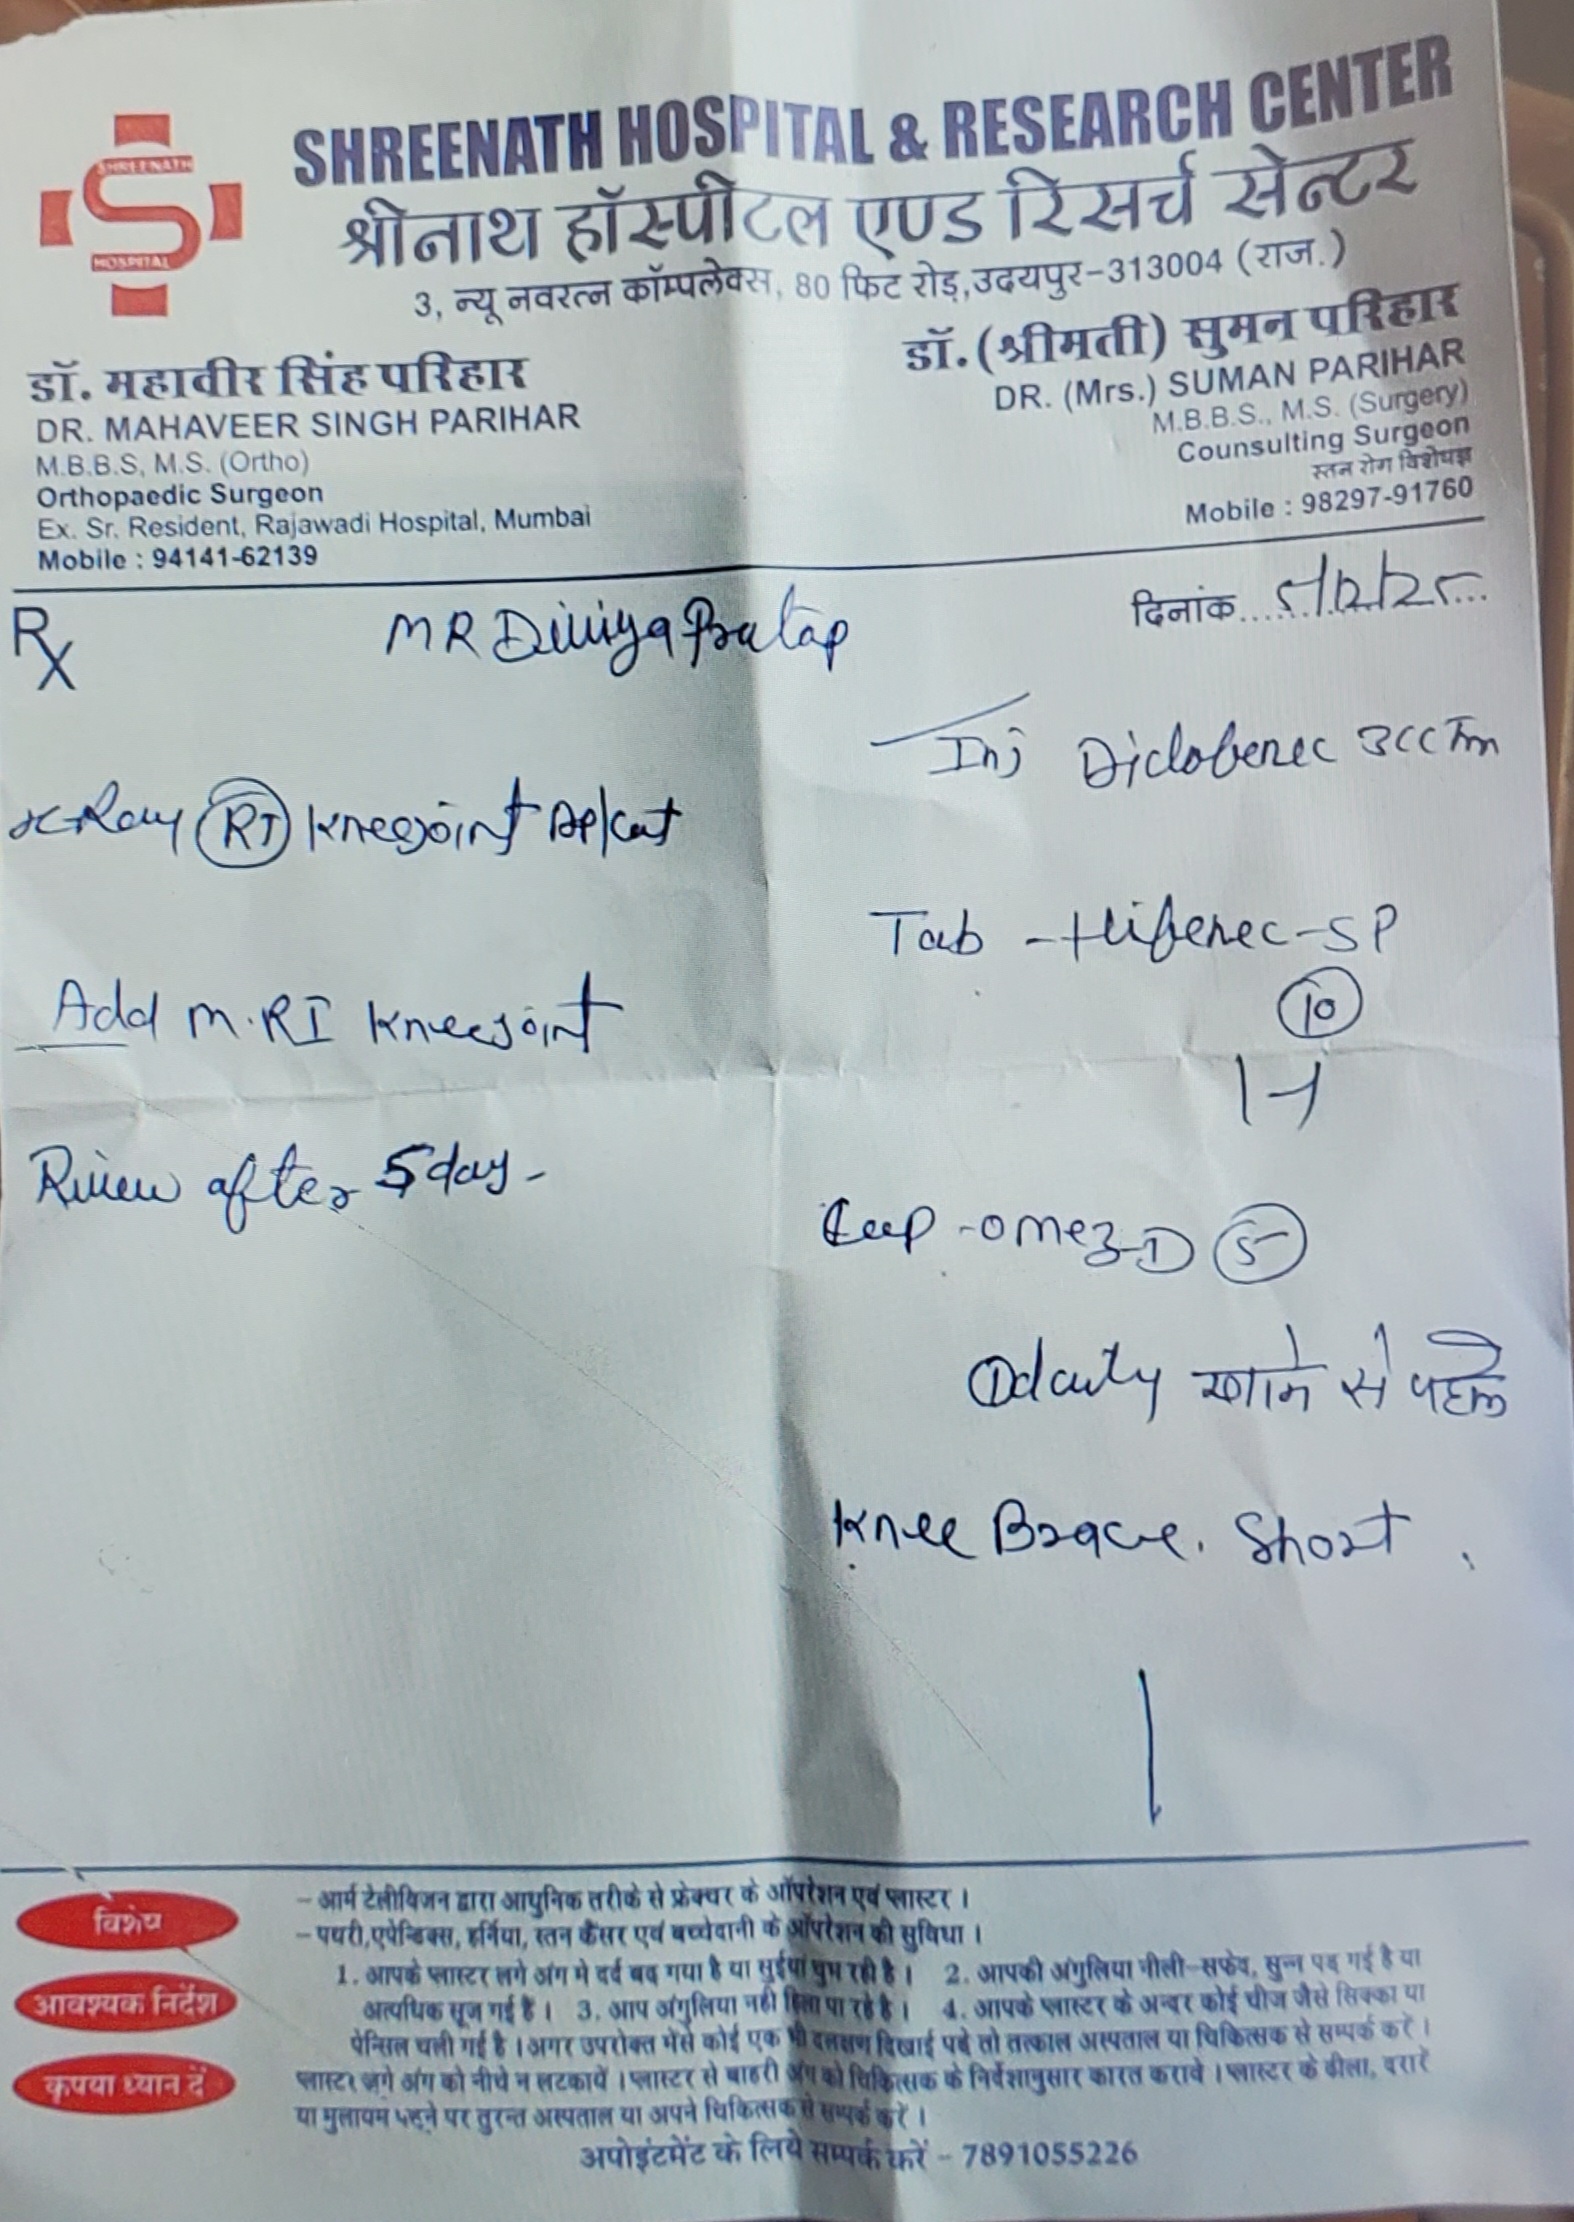 SHREENATH HOSPITAL & RESEARCH CENTER
श्रीनाथ हॉस्पीटल एण्ड रिसर्च सेन्टर
3, न्यू नवरत्न कॉम्पलेक्स, 80 फिट रोड़,उदयपुर-313004 (राज.)
SHREENATH
HOSPITAL
डॉ. महावीर सिंह परिहार
DR. MAHAVEER SINGH PARIHAR
M.B.B.S, M.S. (Ortho)
Orthopaedic Surgeon
Ex. Sr. Resident, Rajawadi Hospital, Mumbai
Mobile : 94141-62139
डॉ. (श्रीमती) सुमन परिहार
DR. (Mrs.) SUMAN PARIHAR
M.B.B.S., M.S. (Surgery)
Counsulting Surgeon
स्तन रोग विशेषज्ञ
Mobile : 98297-91760
Rx
MR Diviya Pratap
दिनांक 5/12/25
X-Ray RT Knee joint AP/Lat
Add M.RI Knee joint
Review after 5 day-
Inj Diclofenec 3cc Im
Tab - Hifenec-SP
10
1-1
Cap -Omez-D 5
1 daily खाने से पहले
Knee Brace. Short
विशेष
- आर्म टेलीविजन द्वारा आधुनिक तरीके से फ्रेक्चर के ऑपरेशन एवं प्लास्टर ।
- पथरी,एपेन्डिक्स, हर्निया, स्तन कैंसर एवं बच्चेदानी के ऑपरेशन की सुविधा ।
आवश्यक निर्देश
1. आपके प्लास्टर लगे अंग मे दर्द बढ़ गया है या सुईयां चुभ रही है । 2. आपकी अंगुलिया नीली-सफेद, सुन्न पड़ गई है या
अत्यधिक सूज गई है । 3. आप अंगुलिया नही हिला पा रहे है । 4. आपके प्लास्टर के अन्दर कोई चीज जैसे सिक्का या
पेन्सिल चली गई है । अगर उपरोक्त मेंसे कोई एक भी लक्षण दिखाई पड़े तो तत्काल अस्पताल या चिकित्सक से सम्पर्क करें ।
कृपया ध्यान दें
प्लास्टर लगे अंग को नीचे न लटकायें । प्लास्टर से बाहरी अंग को चिकित्सक के निर्देशानुसार कसरत करावे । प्लास्टर के ढीला, दरारें
या मुलायम पड़ने पर तुरन्त अस्पताल या अपने चिकित्सक से सम्पर्क करें ।
अपोइंटमेंट के लिये सम्पर्क करें - 7891055226